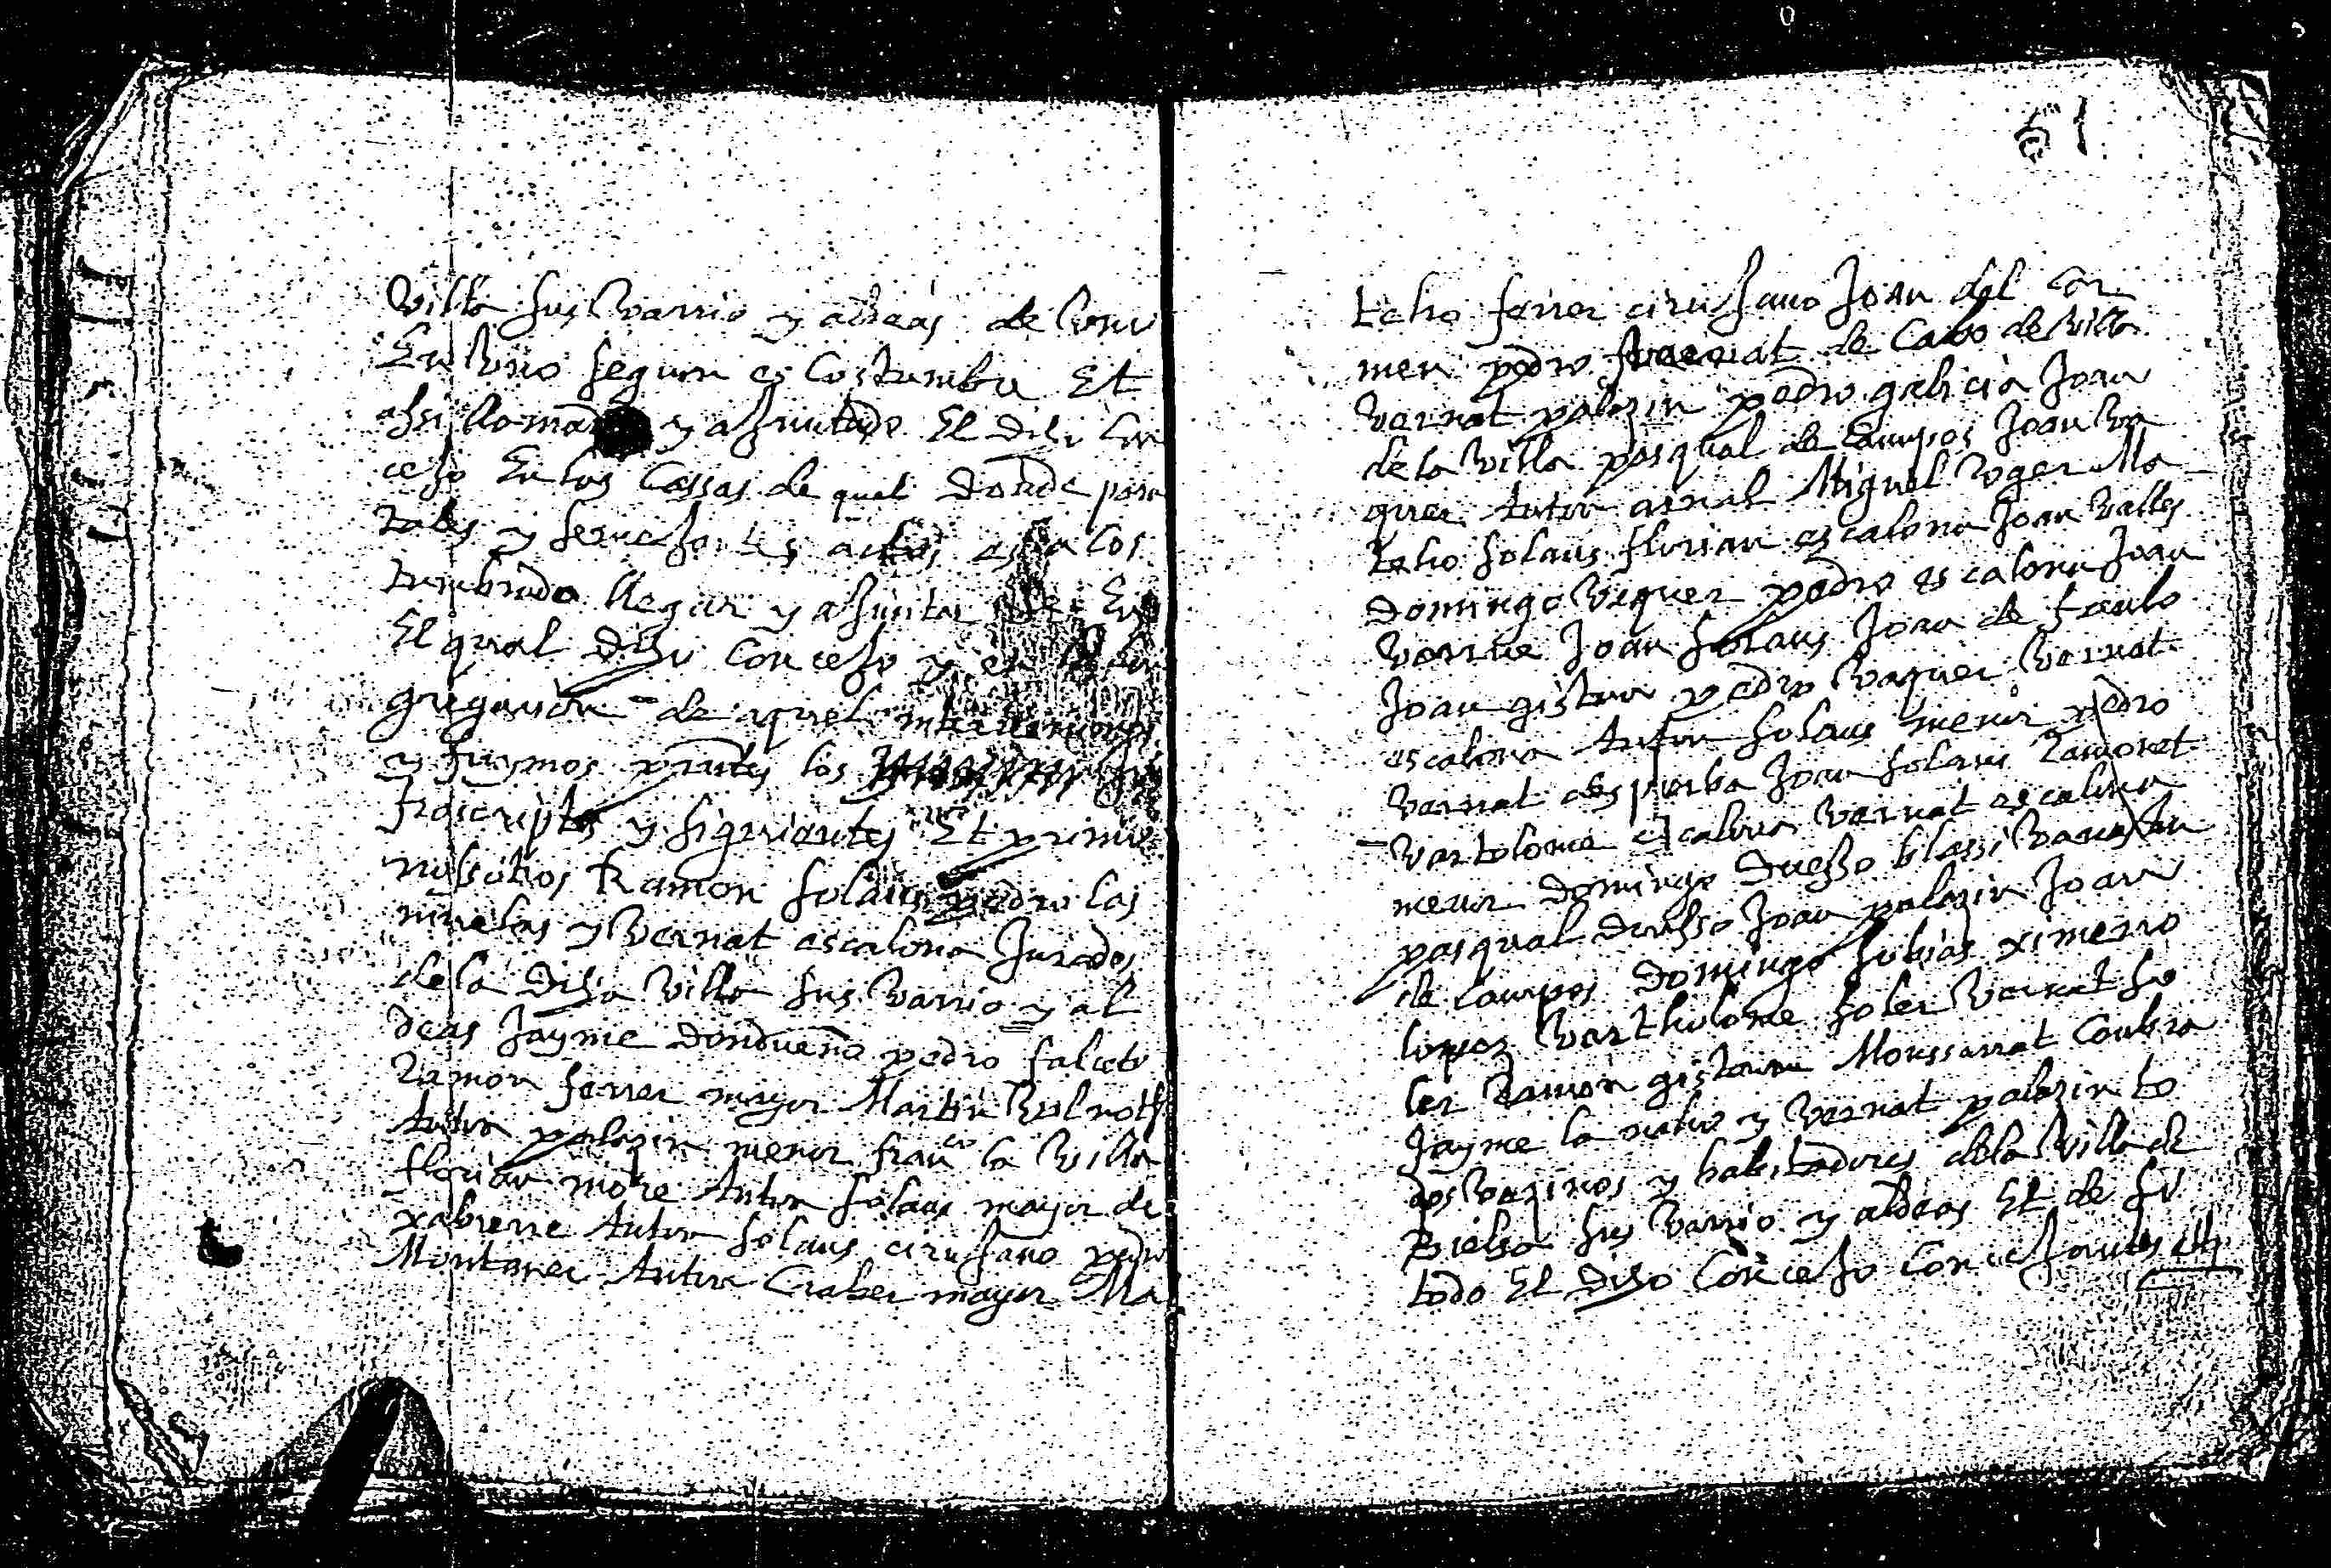 Villa sus Varrio y aldeas de Uno
En Uno segun es Costumbre Et
assi llomado y ajuntado El dicho Con
cejo En las Cassas de quel donde para
tales y semejantes actos es a cos
tumbrado llegar y ajuntar se En
El qual dicho concejo y en
gregacion de aquel intervenimos
y fuymos pñtes los
frascriptos y siguientes Et primo
nosotros Ramon solans pedro las
muelas y Vernat escalona Jurados
de la dicha Villa sus Varrio y al
deas Jayme Donduena pedro falceto
Ramon ferrer mayor Martin
Anton palazin menor franco la Villa
florian more Anton solans mayor de
xabierre Anton solans cirujano pedro
Montaner Anton Craber mayor Ma
51
theo ferrer cirujano Joan del Cor
men pedro de Cabo de Villa
Vernat palazin pedro galicia Joan
de la Villa pasqual de Campos Joan Va
quer Anton arnal Miguel Roger Ma
theo solans florian escalona Joan Valles
Domingo Vaquer pedro escalona Joan
Joan solans Joan de
Joan gistau pedro Vaquer Vernat
escalona Anton solans menor pedro
Vernat despierba Joan solans Ramonet
Vartolome escalona Vernat escalona
menor Domingo Duesso blassi
pasqual Duesso Joan palazin Joan
de Campos Domingo subias ximeno
lopez Vartholome soler Vernat so
ler Ramon gistau Monssarrat
Jayme la y Vernat palazin to
dos Vezinos y habitadores dela Villa de
Bielsa sus Varrio y aldeas Et de si
todo El dicho Concejo Concejantes